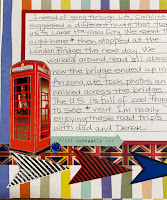 Instead of going through LA, Caroline
suggested a different route that took
us to Lake Havasu City. We spent the
night here & then stopped at the
London Bridge the next day. We
walked around, read all about
how the bridge ended up in
Arizona, ate, took photos and
walked across the bridge.
The U.S. is full of cool things
to see & visit. I'm really
enjoying these road trips
with dad and Derek.
TELEPHONE
currently